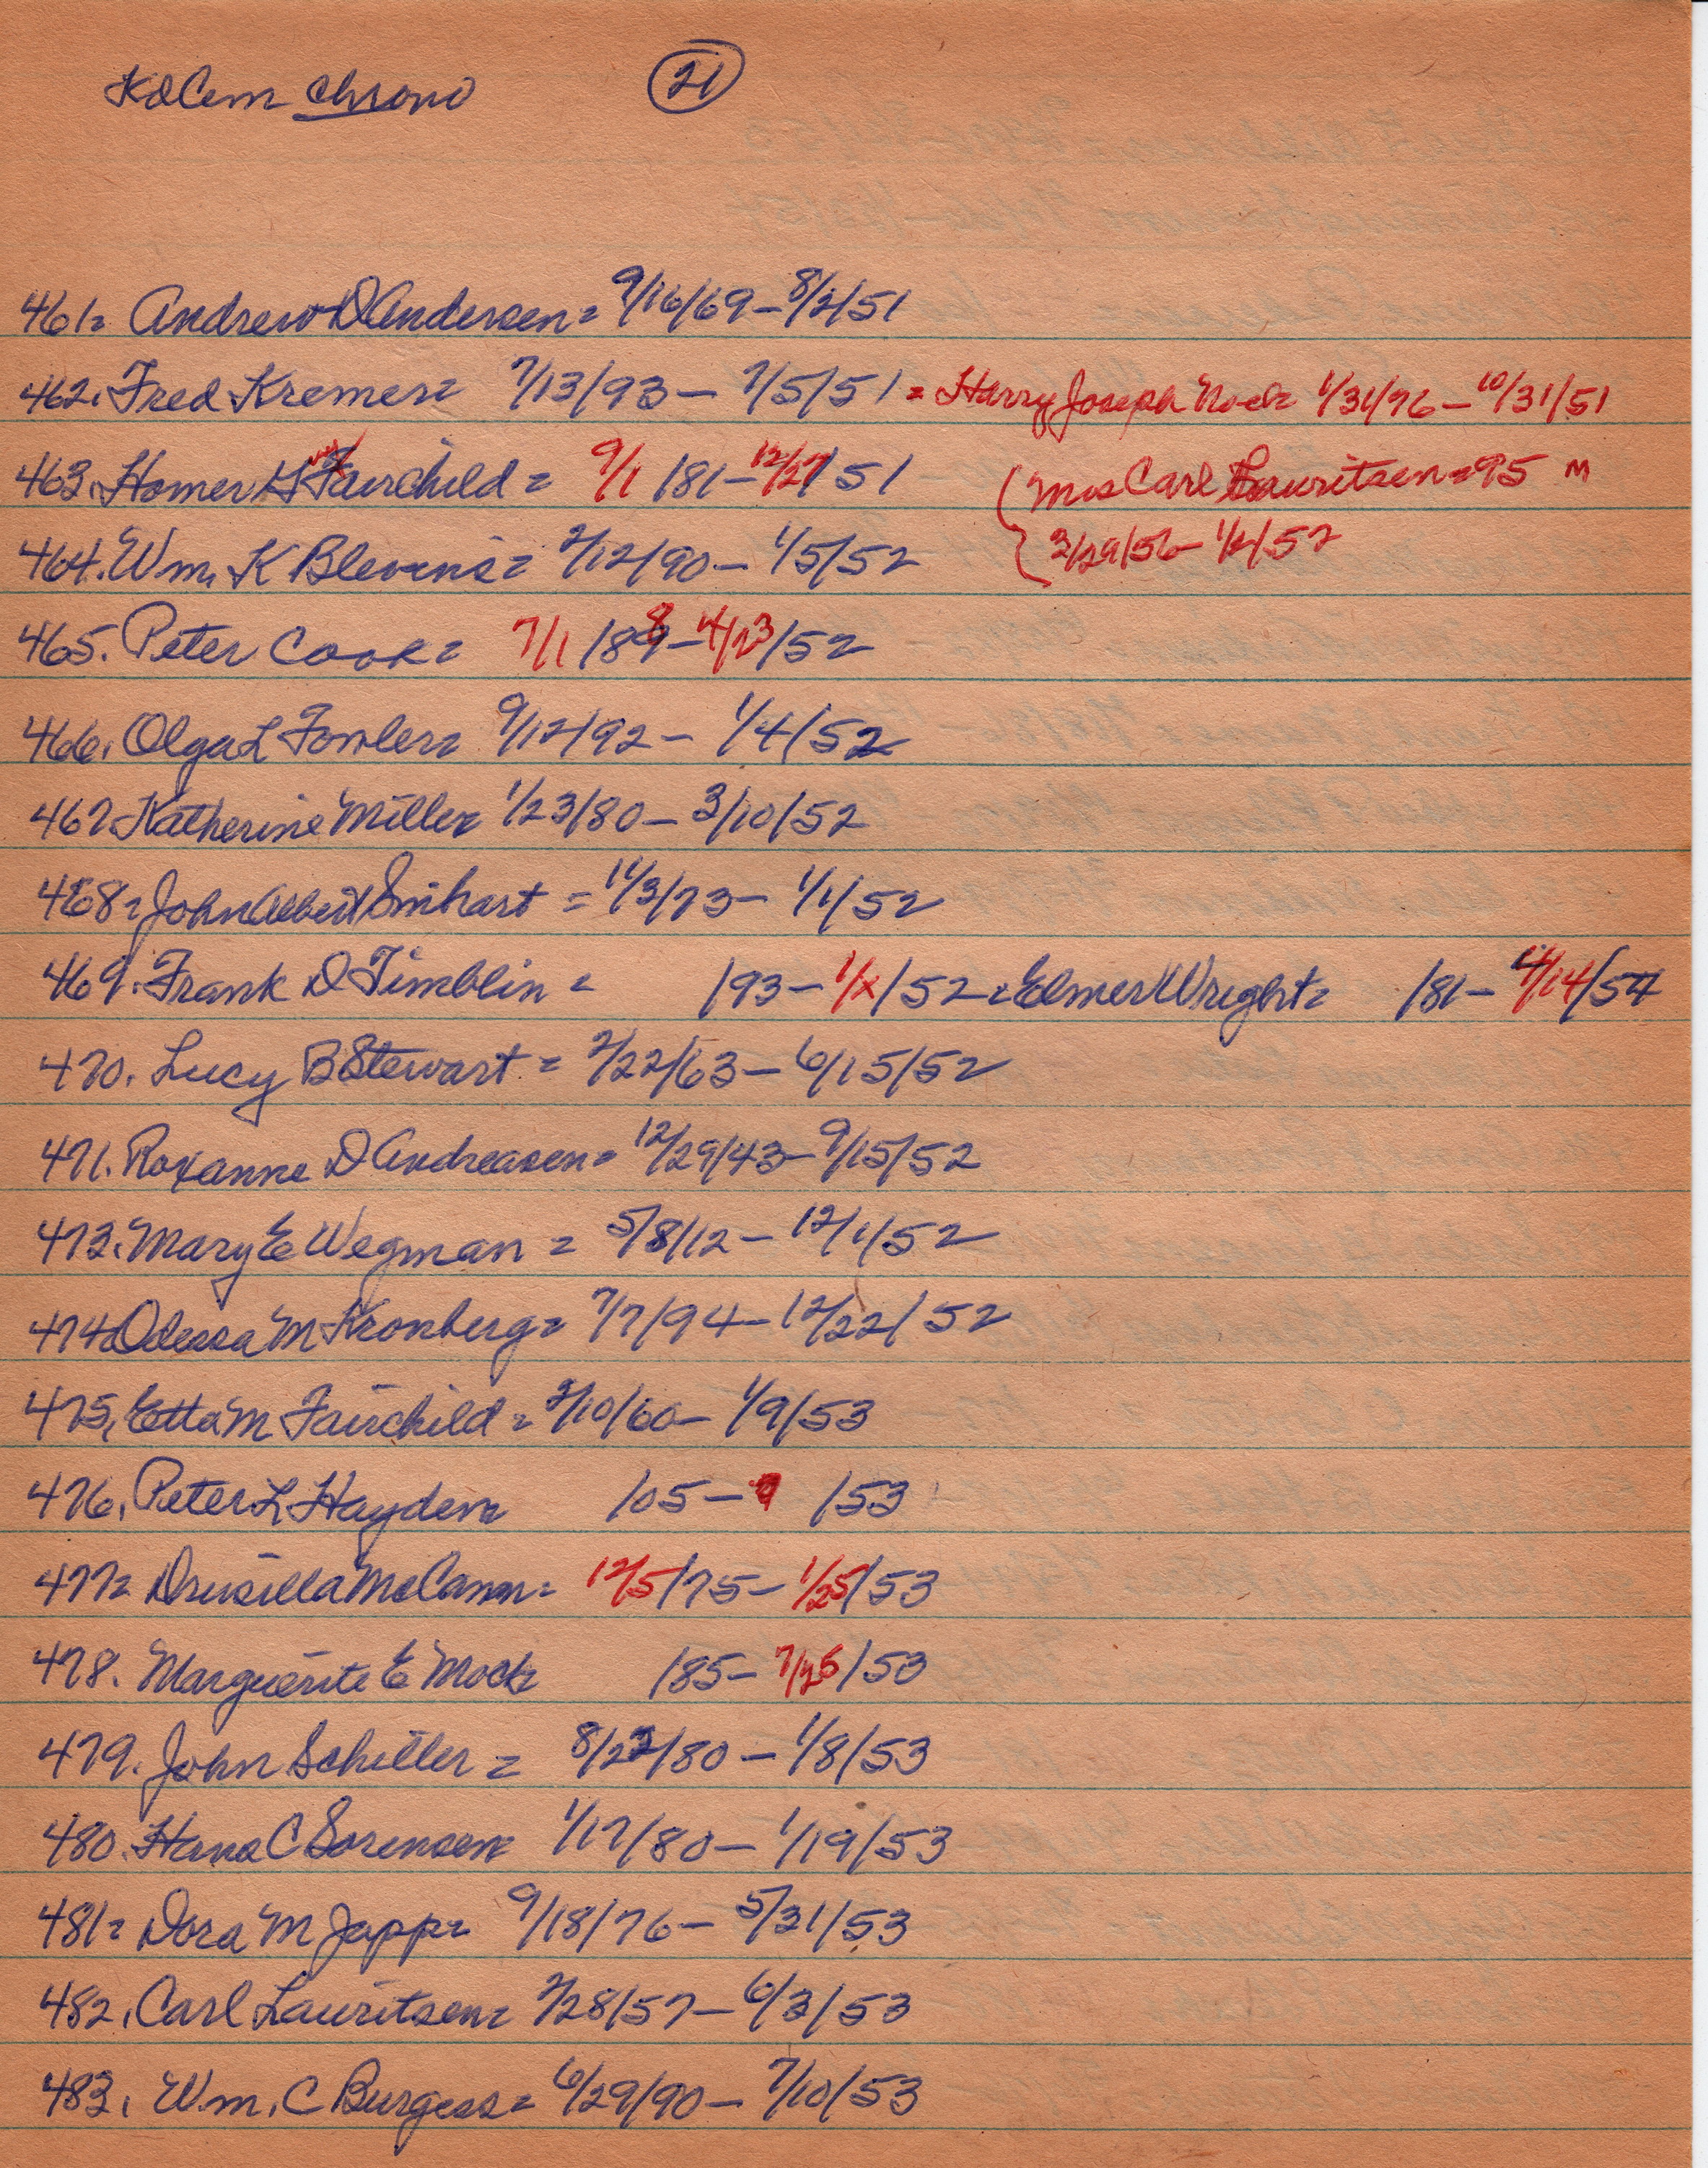 KdCem chrono 21
461= Andrew D Andersen = 9/16/69 - 8/2/51
462. Fred Kremer = 7/13/93 - 7/5/51 = Harry Joseph Noel = 1/31/76 - 10/31/51
463. Homer Fairchild = 9/1 /81 - 12/27/51 (Mrs Carl Lauritsen = 95 M
464. Wm. K Blevins = 2/12/90 - 1/5/52 3/29/56 - 1/2/52
465. Peter Cook = 7/1 /88 - 4/23/52
466. Olga L Fowler = 9/12/92 - 1/4/52
467 Katherine Miller 1/23/80 - 3/10/52
468 = John Albert Smihart = 11/3/73 - 1/1/52
469. Frank D Timblin = /93 - 1/x/52 = Elmer Wright = /81 - 4/14/54
470. Lucy B Stewart = 2/22/63 - 6/15/52
471. Roxanne D Andreasen = 12/29/43 - 9/15/52
473. Mary E Wegman = 5/8/12 - 12/1/52
474 Odessa M Kronberg = 7/7/94 - 12/22/52
475, Etta M Fairchild = 2/10/60 - 1/9/53
476. Peter L Hayden = /05 - /53
477 = Drusilla McCann = 12/5/75 - 1/25/53
478. Marguerite E Mock /85 - 7/25/53
479. John Schiller = 8/23/80 - 1/8/53
480. Hans C Sorensen 1/17/80 - 1/19/53
481 = Dora M Japp = 9/18/76 - 5/31/53
482. Carl Lauritsen = 2/28/57 - 6/3/53
483. Wm. C Burgess = 6/29/90 - 7/10/53